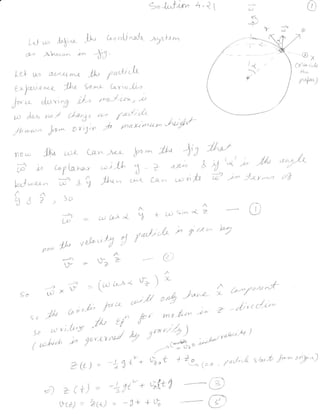 Solution 4-21
①
Let us define the coordinate system
as shown in fig.
Let us assume the particle
experience the same coriolis
force during its motion, i.e
ω does not change as particle
thrown from origin to maximum height
now the we can see from the fig that
ω⃗ is coplanar with y - z axis & if 'α' is the angle
between ω⃗ & ŷ then we can write ω⃗ in terms of
ŷ & ẑ, so
ω⃗ = ω cos α ŷ + ω sin α ẑ — ①
now the velocity of particle is given by
v⃗ = v_z ẑ — ②
so ω⃗ × v⃗ = (ω cos α v_z) x̂
so the coriolis force will only have x̂ component
so writing the eqⁿ for motion in z-direction
(which is governed by gravity)
z(t) = -½ gt² + v_z0 t + z_0
(i.e. particle start from origin)
⇒ z(t) = -½ gt² + — ③
v(z) = ż(t) = -gt + v_0 — ③'